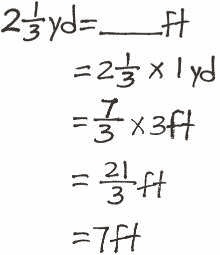 2 1/3 yd = ____ ft
= 2 1/3 × 1 yd
= 7/3 × 3 ft
= 21/3 ft
= 7 ft